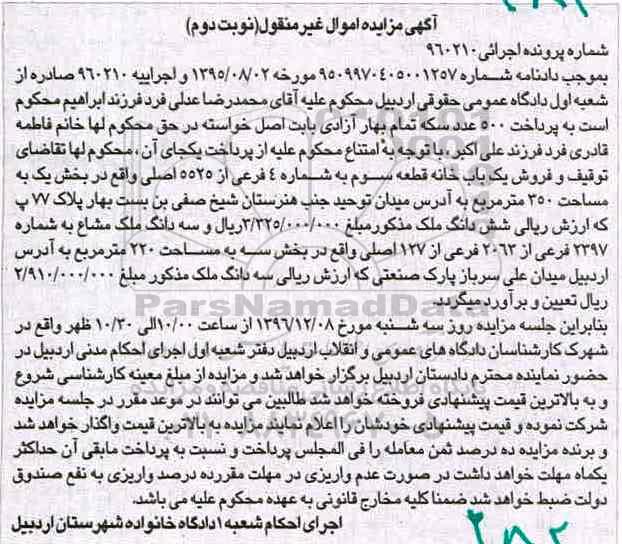 آگهی مزایده اموال غیر منقول(نوبت دوم)
شماره پرونده اجرائی۹۶۰۲۱۰
بموجب دادنامه شماره ۹۵۰۹۹۷۰۴۰۵۰۰۱۲۵۷ مورخه ۱۳۹۵/۰۸/۰۲ و اجراییه ۹۶۰۲۱۰ صادره از
شعبه اول دادگاه عمومی حقوقی اردبیل محکوم علیه آقای محمدرضا عدلی فرد فرزند ابراهیم محکوم
است به پرداخت ۵۰۰ عدد سکه تمام بهار آزادی بابت اصل خواسته در حق محکوم لها خانم فاطمه
قادری فرد فرزند علی اکبر، با توجه به امتناع محکوم علیه از پرداخت یکجای آن، محکوم لها تقاضای
توقیف و فروش یک باب خانه قطعه سوم به شماره ۴ فرعی از ۵۵۲۵ اصلی واقع در بخش یک به
مساحت ۳۵۰ مترمربع به آدرس میدان توحید جنب هنرستان شیخ صفی بن بست بهار پلاک ۷۷ پ
که ارزش ریالی شش دانگ ملک مذکور مبلغ ۳/۳۲۵/۰۰۰/۰۰۰ریال و سه دانگ ملک مشاع به شماره
۲۳۹۷ فرعی از ۲۰۶۳ فرعی از ۱۲۷ اصلی واقع در بخش سه به مساحت ۲۲۰ مترمربع به آدرس
اردبیل میدان علی سرباز پارک صنعتی که ارزش ریالی سه دانگ ملک مذکور مبلغ ۲/۹۱۰/۰۰۰/۰۰۰
ریال تعیین و برآورد میگردد.
بنابراین جلسه مزایده روز سه شنبه مورخ ۱۳۹۶/۱۲/۰۸ از ساعت ۱۰/۰۰الی ۱۰/۳۰ ظهر واقع در
شهرک کارشناسان دادگاه های عمومی و انقلاب اردبیل دفتر شعبه اول اجرای احکام مدنی اردبیل در
حضور نماینده محترم دادستان اردبیل برگزار خواهد شد و مزایده از مبلغ معینه کارشناسی شروع
و به بالاترین قیمت پیشنهادی فروخته خواهد شد طالبین می توانند در موعد مقرر در جلسه مزایده
شرکت نموده و قیمت پیشنهادی خودشان را اعلام نمایند مزایده به بالاترین قیمت واگذار خواهد شد
و برنده مزایده ده درصد ثمن معامله را فی المجلس پرداخت و نسبت به پرداخت مابقی آن حداکثر
یکماه مهلت خواهد داشت در صورت عدم واریزی در مهلت مقررده درصد واریزی به نفع صندوق
دولت ضبط خواهد شد ضمنا کلیه مخارج قانونی به عهده محکوم علیه می باشد.
اجرای احکام شعبه ۱ دادگاه خانواده شهرستان اردبیل
ParsNamadData